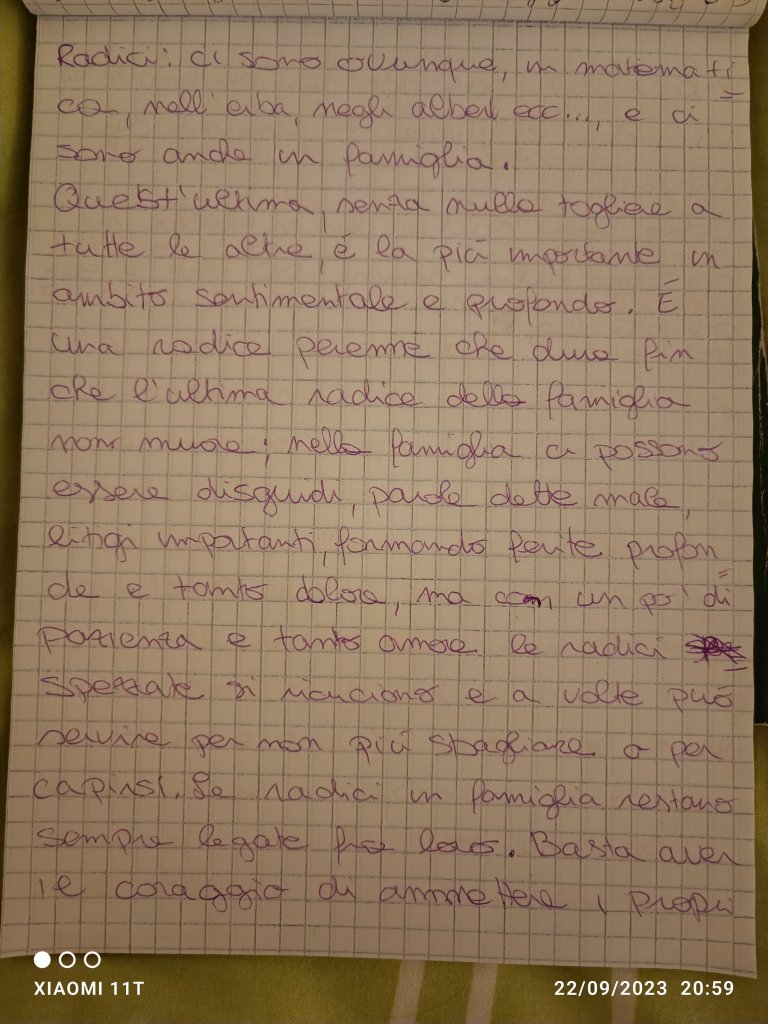 Radici: ci sono ovunque, in matemati
ca, nell'erba, negli alberi ecc..., e ci
sono anche in famiglia.
Quest'ultima, senza nulla togliere a
tutte le altre, é la più importante in
ambito sentimentale e profondo. É
una radice perenne che dura fin
che l'ultima radice della famiglia
non muore; nella famiglia ci possono
essere disguidi, parole dette male,
litigi importanti, formando ferite profon
de e tanto dolore, ma con un po' di
pazienza e tanto amore le radici
spezzate si ricuciono e a volte può
servire per non più sbagliare o per
capirsi. Le radici in famiglia restano
sempre legate fra loro. Basta aver
il coraggio di ammettere i propri
XIAOMI 11T
22/09/2023 20:59